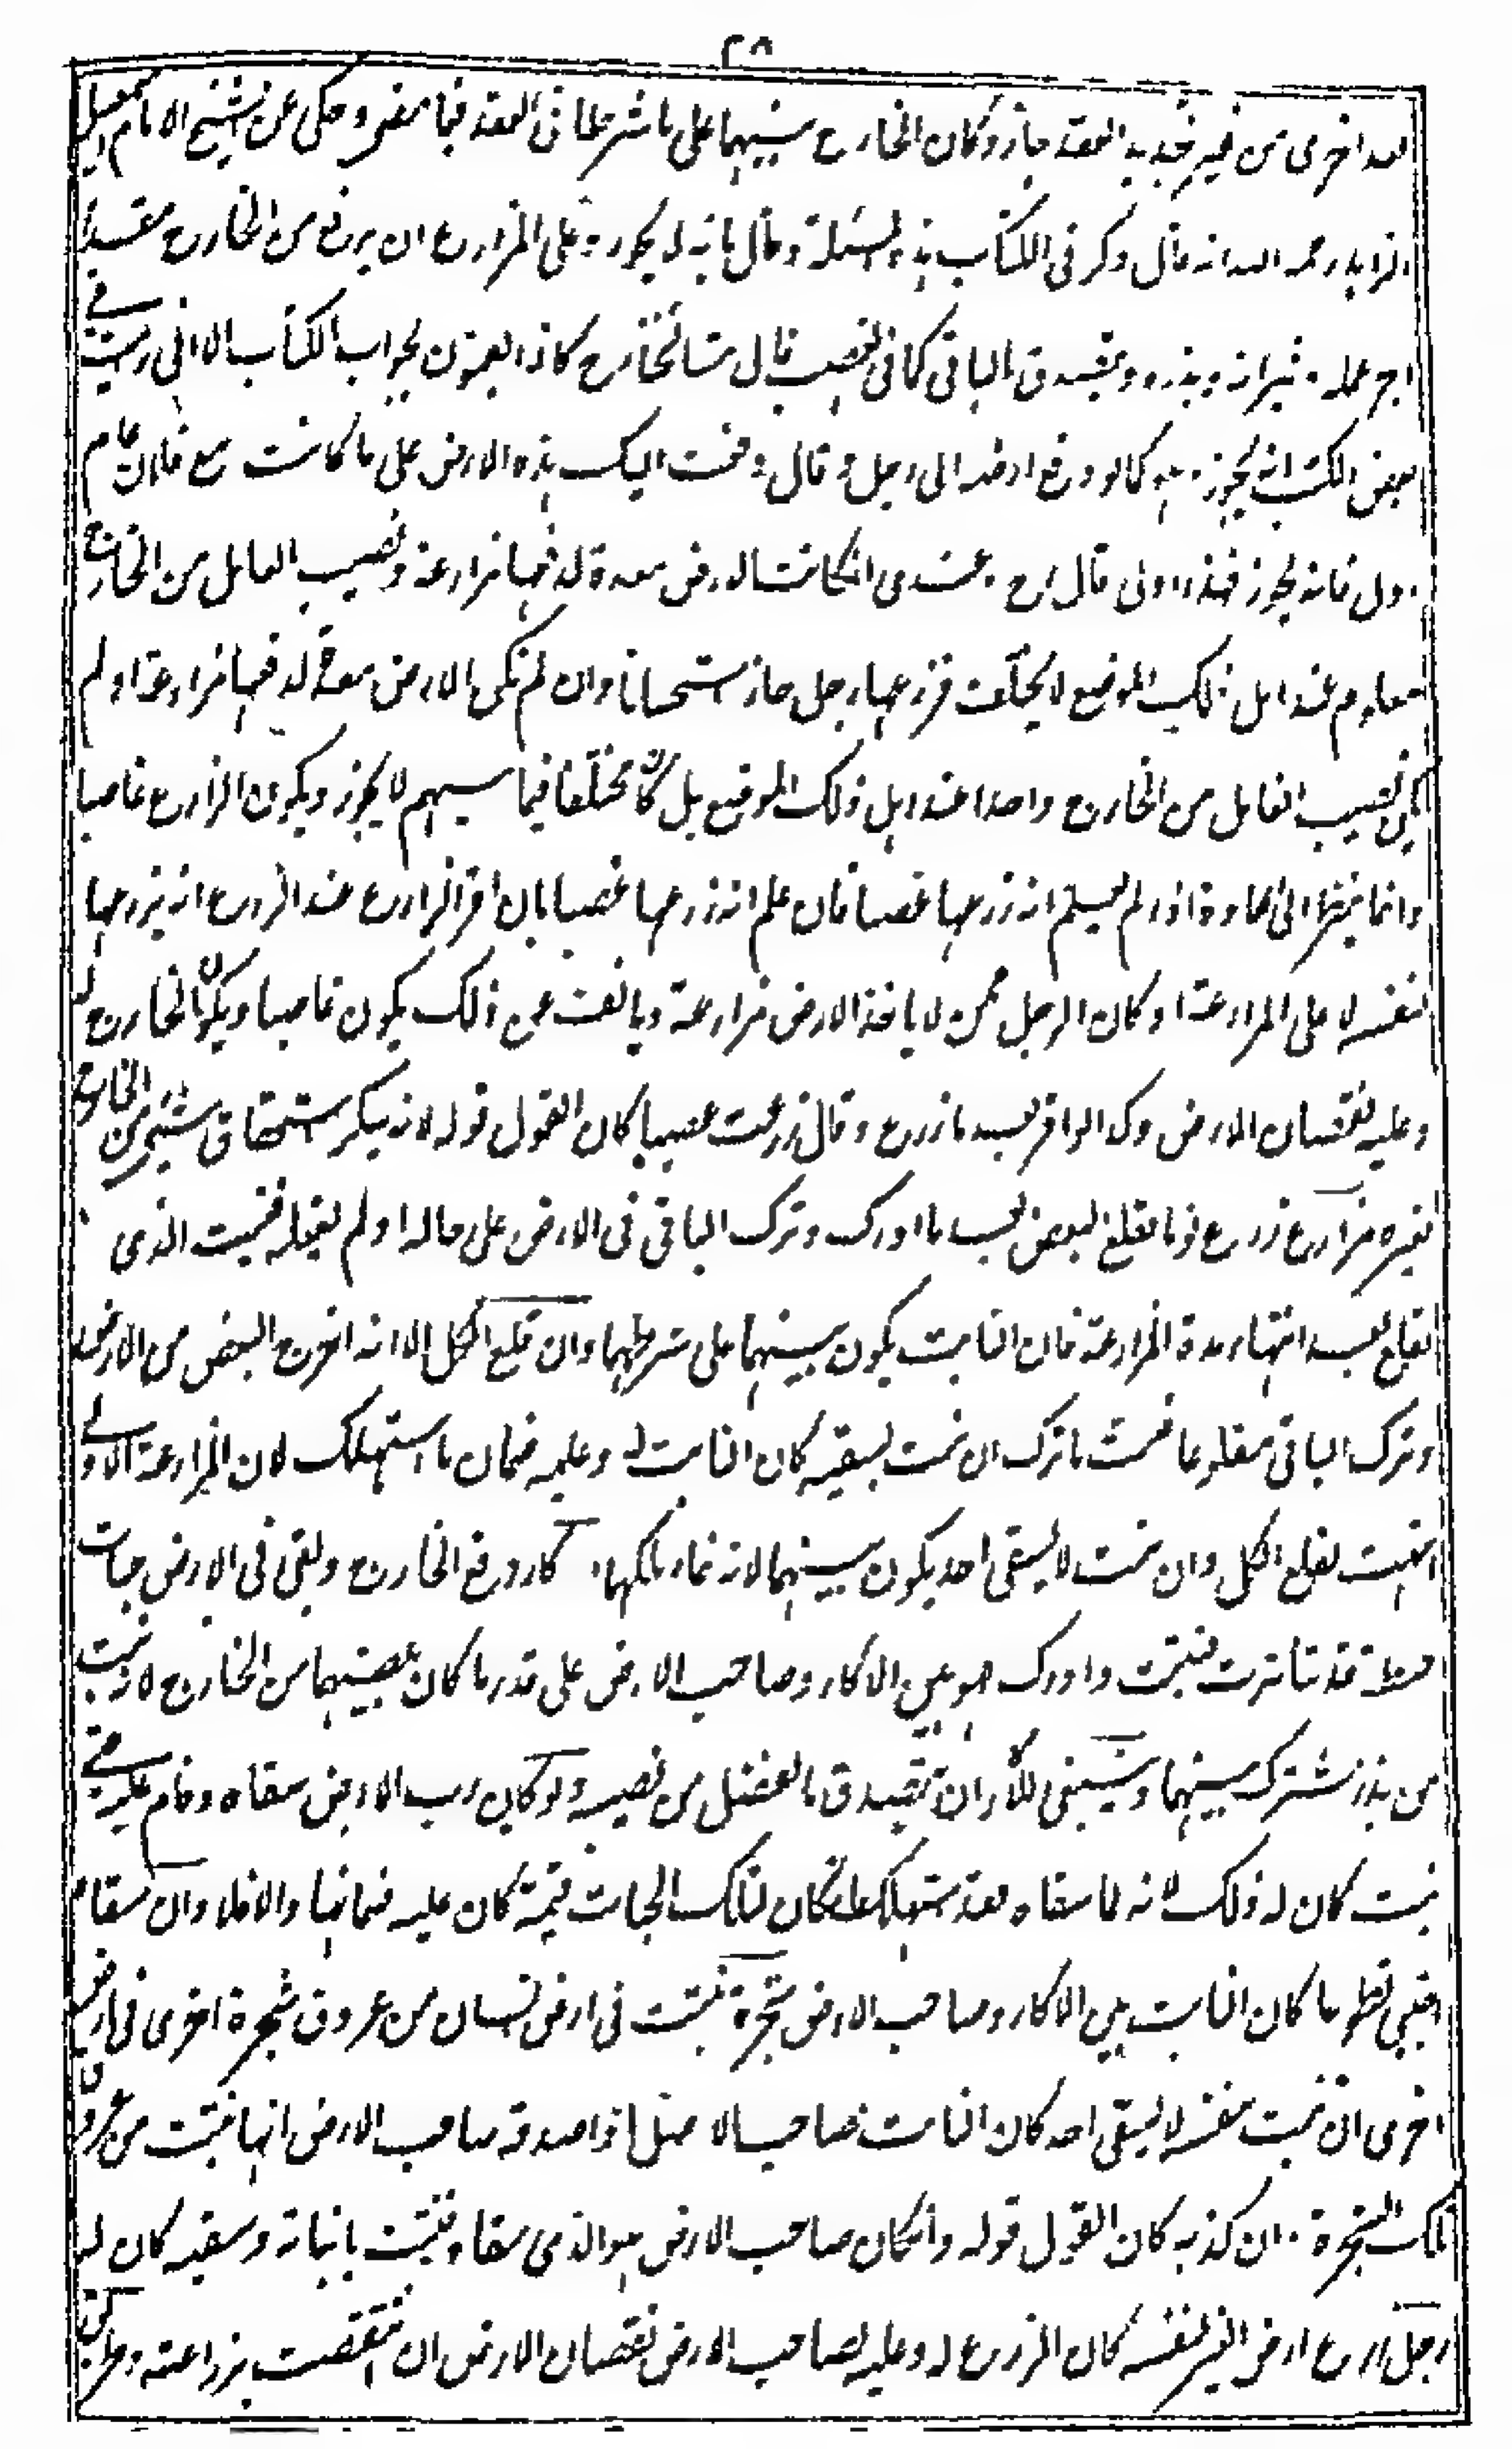 ٢٨
بعد اخرى من غير تجديد العقد جاز وكان الخارج بينهما على ما شرطا في العقد فيما مضى وحكى عن الشيخ الامام اسمعيل
الزاهد رحمه الله انه قال ذكر في الكتاب هذه المسئلة وقال بانه لا يجوز وعلى المزارع ان يرفع من الخارج مقدار
اجر عمله وثيرانه وبذره ويتصدق بالباقي كما في الغصب قال مشائخنا رح كانوا يفتون بجواب الكتاب الا اني رأيت في
بعض الكتب انه يجوز وهو كما لو دفع ارضه الى رجل وقال دفعت اليك هذه الارض على ما كانت مع فلان عام
اول فانه يجوز فهذا اولى قال رح وعندي ان كانت الارض معدة لدفعها مزارعة ونصيب العامل من الخارج
معلوم عند اهل ذلك الموضع لا يختلف فزرعها رجل جاز استحسانا وان لم تكن الارض معدة لدفعها مزارعة او لم
يكن نصيب العامل من الخارج واحدا عند اهل ذلك الموضع بل كان مختلفا فيما بينهم لا يجوز ويكون الزارع غاصبا
وانما ينظر الى العادة اذا لم يعلم انه زرعها غصبا فان علم انه زرعها غصبا بان اقر الزارع عند الزرع انه يزرعها
لنفسه لا على المزارعة او كان الرجل ممن لا ياخذ الارض مزارعة ويانف عن ذلك يكون غاصبا ويكون الخارج له
وعليه نقصان الارض وكذا لو اقر بعد ما زرع وقال زرعت غصبا كان القول قوله لانه ينكر استحقاق شيئ من الخارج
لغيره مزارع زرع ثوما فقلع البعض بعد ما ادرك وترك الباقي في الارض على حاله او لم يقلع فنبت الذي
لم يقلع بعد انتهاء مدة المزارعة فان النابت يكون بينهما على شرطهما وان قلع الكل الا انه اخرج البعض من الارض
وترك الباقي مقلوعا فنبت ما ترك ان نبت بسقيه كان النابت له وعليه ضمان ما استهلك لان المزارعة الاولى
انتهت بقلع الكل وان نبت لا بسقي احد يكون بينهما لانه نماء ملكهما اكار رفع الخارج وبقي في الارض حبات
حنطة قد تناثرت فنبتت وادرك فهو بين الاكار وصاحب الارض على قدر ما كان نصيبهما من الخارج لانه نبت
من بذر مشترك بينهما وينبغي للاكار ان يتصدق بالفضل من نصيبه ولو كان رب الارض سقاه وقام عليه حتى
نبت كان له ذلك لانه لما سقاه فقد استهلكها فان كان لتلك الحبات قيمة كان عليه ضمانها والا فلا وان سقاه
اجنبي تطوعا كان النابت بين الاكار وصاحب الارض شجرة نبتت في ارض انسان من عروق شجرة اخرى في ارض
اخرى ان نبت بنفسه لا بسقي احد كان النابت لصاحب الاصل اذا صدقه صاحب الارض انها نبتت من عروق
تلك الشجرة وان كذبه كان القول قوله وان كان صاحب الارض هو الذي سقاه فنبتت بانباته وسقيه كان له
رجل زرع ارض الغير لنفسه كان الزرع له وعليه لصاحب الارض نقصان الارض ان انتقصت بزراعته وطريق